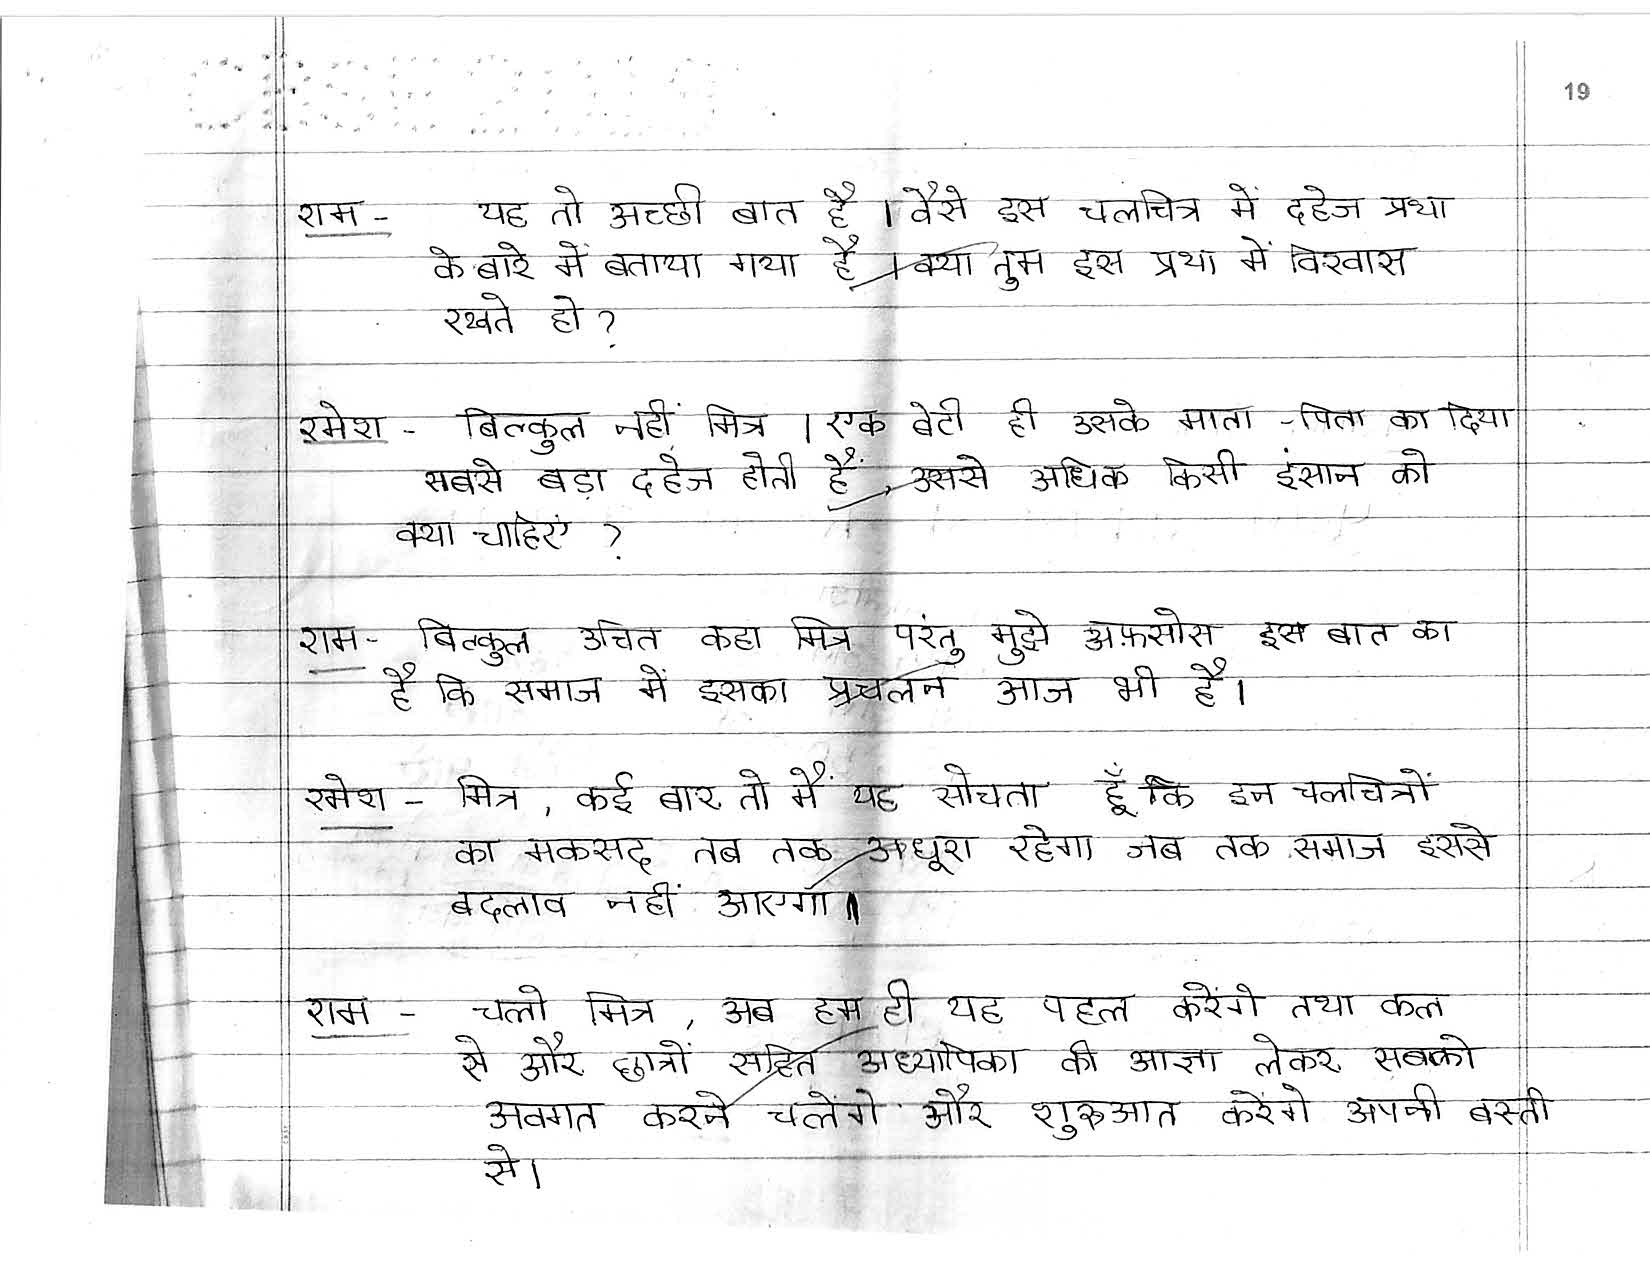 19
राम - यह तो अच्छी बात है । वैसे इस चलचित्र में दहेज प्रथा
के बारे में बताया गया है । क्या तुम इस प्रथा में विश्वास
रखते हो ?
रमेश - बिल्कुल नहीं मित्र । एक बेटी ही उसके माता - पिता का दिया
सबसे बड़ा दहेज होती हैं , उससे अधिक किसी इंसान को
क्या चाहिएं ?
राम - बिल्कुल उचित कहा मित्र परंतु मुझे अफ़सोस इस बात का
है कि समाज में इसका प्रचलन आज भी है ।
रमेश - मित्र , कई बार तो मैं यह सोचता हूँ कि इन चलचित्रों
का मकसद तब तक अधूरा रहेगा जब तक समाज इससे
बदलाव नहीं आएगा ।
राम - चलो मित्र , अब हम ही यह पहल करेंगे तथा कल
से और छात्रों सहित अध्यापिका की आज्ञा लेकर सबको
अवगत करने चलेंगे और शुरुआत करेंगे अपनी बस्ती
से ।